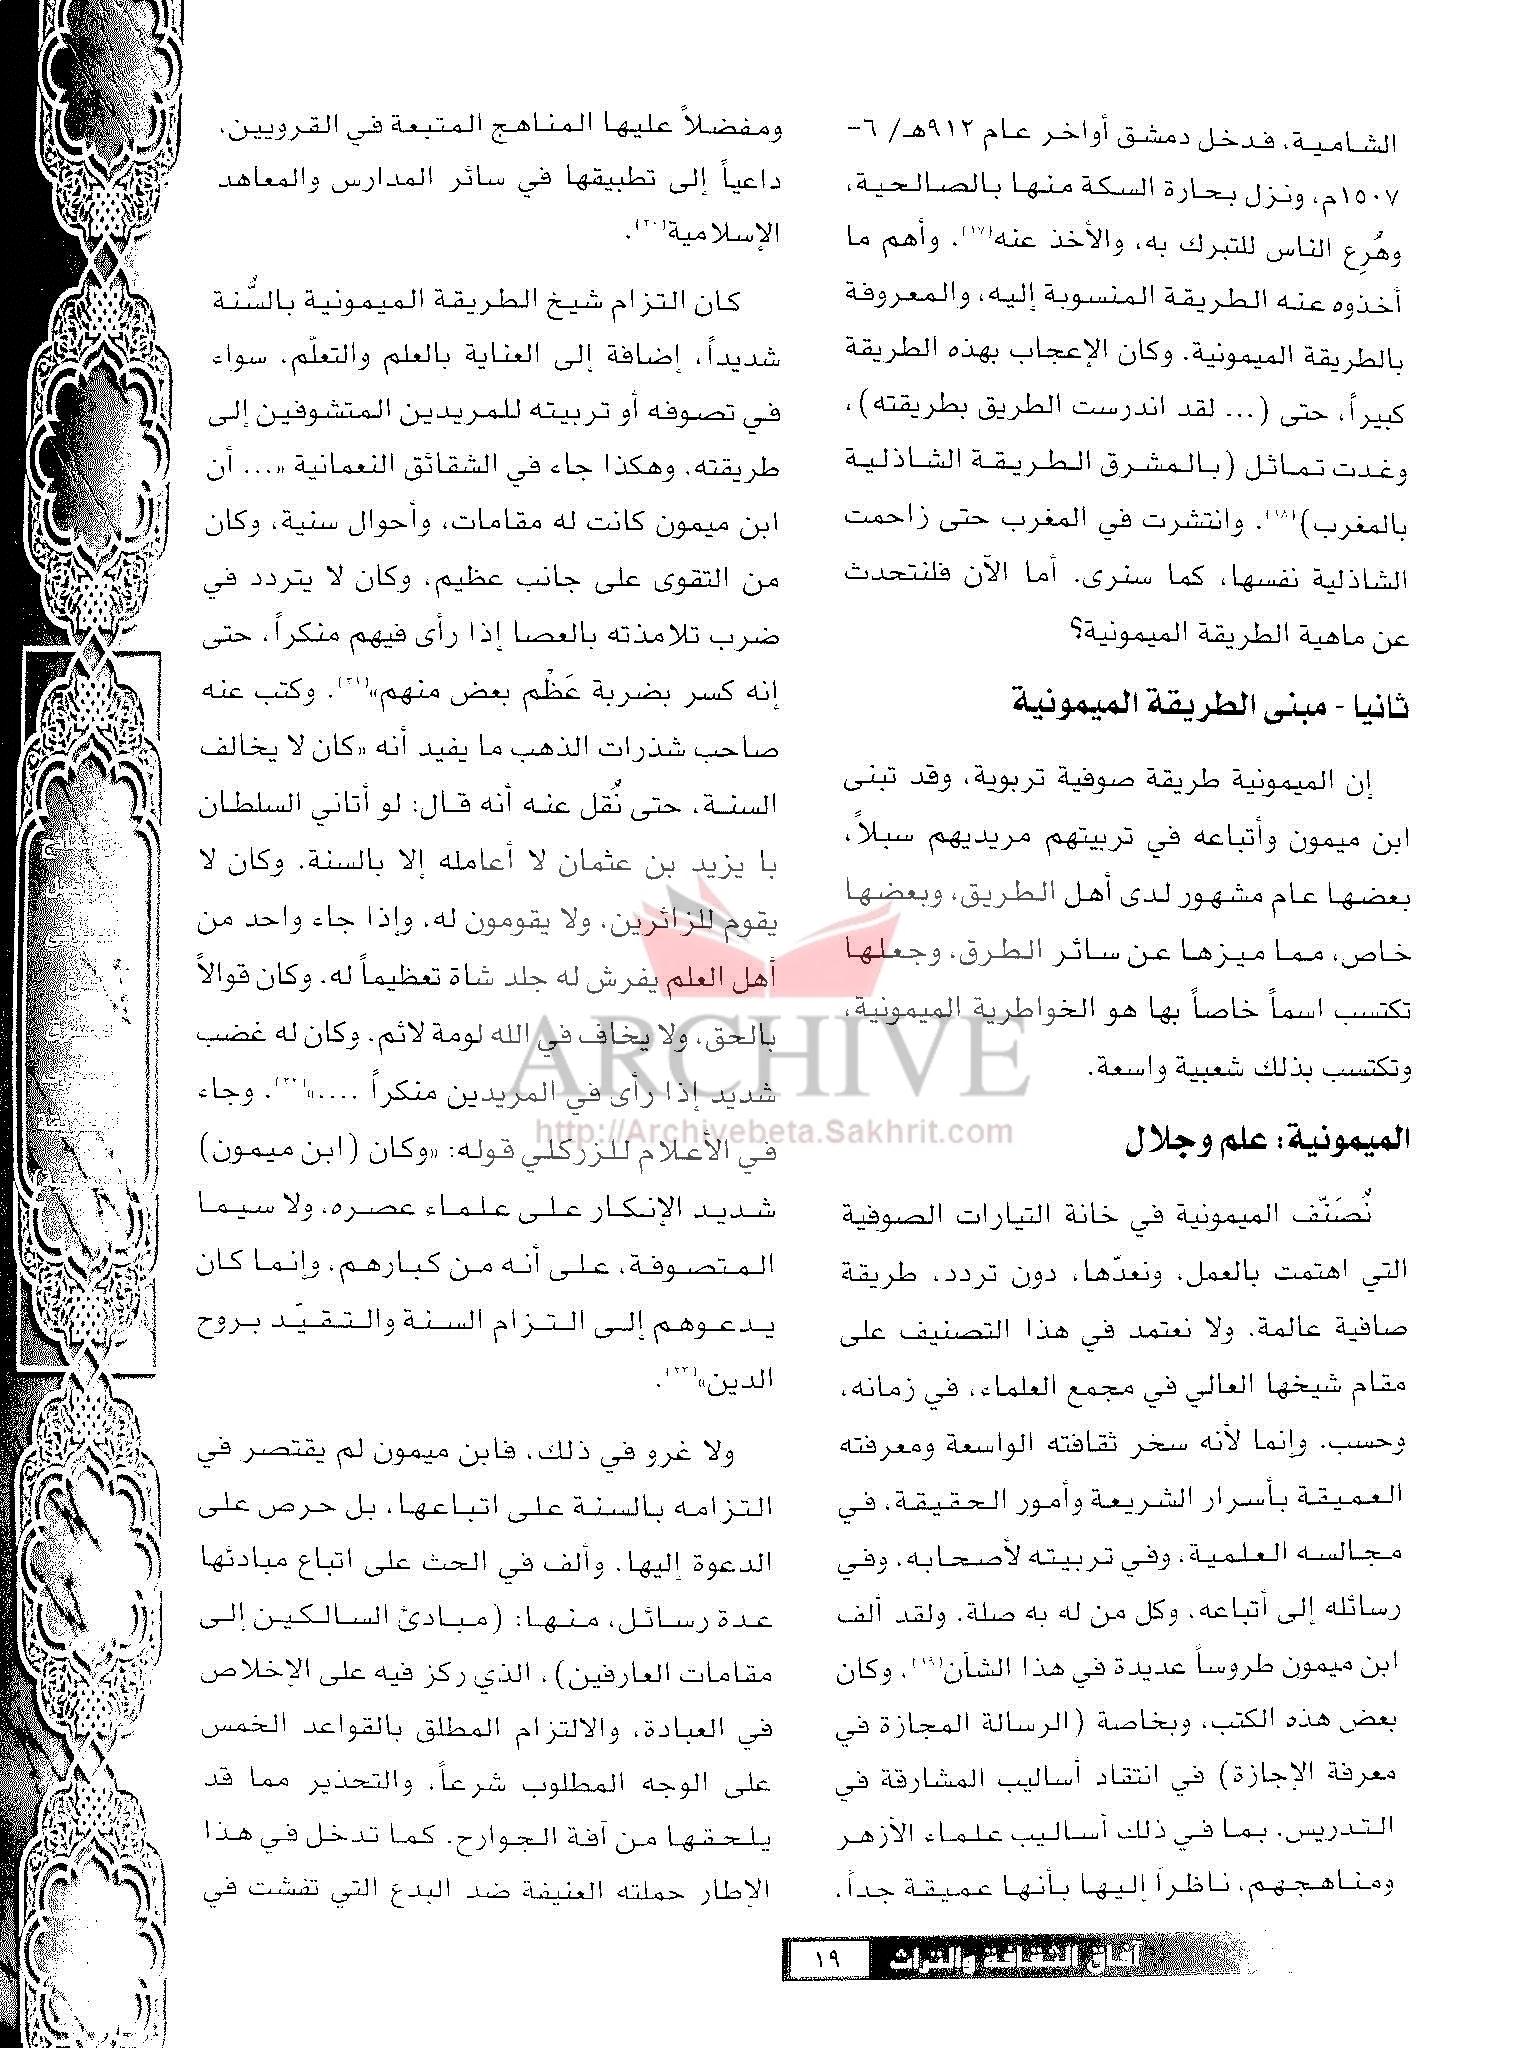 الشامية، فدخل دمشق أواخر عام ٩١٢هـ/ ٦-
١٥٠٧م، ونزل بحارة السكة منها بالصالحية،
وهُرِع الناس للتبرك به، والأخذ عنه(١٧). وأهم ما
أخذوه عنه الطريقة المنسوبة إليه، والمعروفة
بالطريقة الميمونية. وكان الإعجاب بهذه الطريقة
كبيراً، حتى (... لقد اندرست الطريق بطريقته)،
وغدت تماثل (بالمشرق الطريقة الشاذلية
بالمغرب)(١٨). وانتشرت في المغرب حتى زاحمت
الشاذلية نفسها، كما سنرى. أما الآن فلنتحدث
عن ماهية الطريقة الميمونية؟
ثانيا - مبنى الطريقة الميمونية
إن الميمونية طريقة صوفية تربوية، وقد تبنى
ابن ميمون وأتباعه في تربيتهم مريديهم سبلاً،
بعضها عام مشهور لدى أهل الطريق، وبعضها
خاص، مما ميزها عن سائر الطرق، وجعلها
تكتسب اسماً خاصاً بها هو الخواطرية الميمونية،
وتكتسب بذلك شعبية واسعة.
الميمونية: علم وجلال
نُصَنّف الميمونية في خانة التيارات الصوفية
التي اهتمت بالعمل، ونعدّها، دون تردد، طريقة
صافية عالمة. ولا نعتمد في هذا التصنيف على
مقام شيخها العالي في مجمع العلماء، في زمانه،
وحسب. وإنما لأنه سخر ثقافته الواسعة ومعرفته
العميقة بأسرار الشريعة وأمور الحقيقة، في
مجالسه العلمية، وفي تربيته لأصحابه، وفي
رسائله إلى أتباعه، وكل من له به صلة. ولقد ألف
ابن ميمون طروساً عديدة في هذا الشأن(١٩)، وكان
بعض هذه الكتب، وبخاصة (الرسالة المجازة في
معرفة الإجازة) في انتقاد أساليب المشارقة في
التدريس، بما في ذلك أساليب علماء الأزهر
ومناهجهم، ناظراً إليها بأنها عميقة جداً،
ومفضلاً عليها المناهج المتبعة في القرويين،
داعياً إلى تطبيقها في سائر المدارس والمعاهد
الإسلامية(٢٠).
كان التزام شيخ الطريقة الميمونية بالسُّنة
شديداً، إضافة إلى العناية بالعلم والتعلّم، سواء
في تصوفه أو تربيته للمريدين المتشوفين إلى
طريقته، وهكذا جاء في الشقائق النعمانية «... أن
ابن ميمون كانت له مقامات، وأحوال سنية، وكان
من التقوى على جانب عظيم، وكان لا يتردد في
ضرب تلامذته بالعصا إذا رأى فيهم منكراً، حتى
إنه كسر بضربة عَظْم بعض منهم»(٢١). وكتب عنه
صاحب شذرات الذهب ما يفيد أنه «كان لا يخالف
السنة، حتى نُقل عنه أنه قال: لو أتاني السلطان
با يزيد بن عثمان لا أعامله إلا بالسنة. وكان لا
يقوم للزائرين، ولا يقومون له، وإذا جاء واحد من
أهل العلم يفرش له جلد شاة تعظيماً له. وكان قوالاً
بالحق، ولا يخاف في الله لومة لائم. وكان له غضب
شديد إذا رأى في المريدين منكراً ....»(٢٢). وجاء
في الأعلام للزركلي قوله: «وكان (ابن ميمون)
شديد الإنكار على علماء عصره، ولا سيما
المتصوفة، على أنه من كبارهم، وإنما كان
يدعوهم إلى التزام السنة والتقيّد بروح
الدين»(٢٣).
ولا غرو في ذلك، فابن ميمون لم يقتصر في
التزامه بالسنة على اتباعها، بل حرص على
الدعوة إليها. وألف في الحث على اتباع مبادئها
عدة رسائل، منها: (مبادئ السالكين إلى
مقامات العارفين)، الذي ركز فيه على الإخلاص
في العبادة، والالتزام المطلق بالقواعد الخمس
على الوجه المطلوب شرعاً، والتحذير مما قد
يلحقها من آفة الجوارح. كما تدخل في هذا
الإطار حملته العنيفة ضد البدع التي تفشت في
ARCHIVE
http://Archivebeta.Sakhrit.com
آفاق الثقافة والتراث ١٩